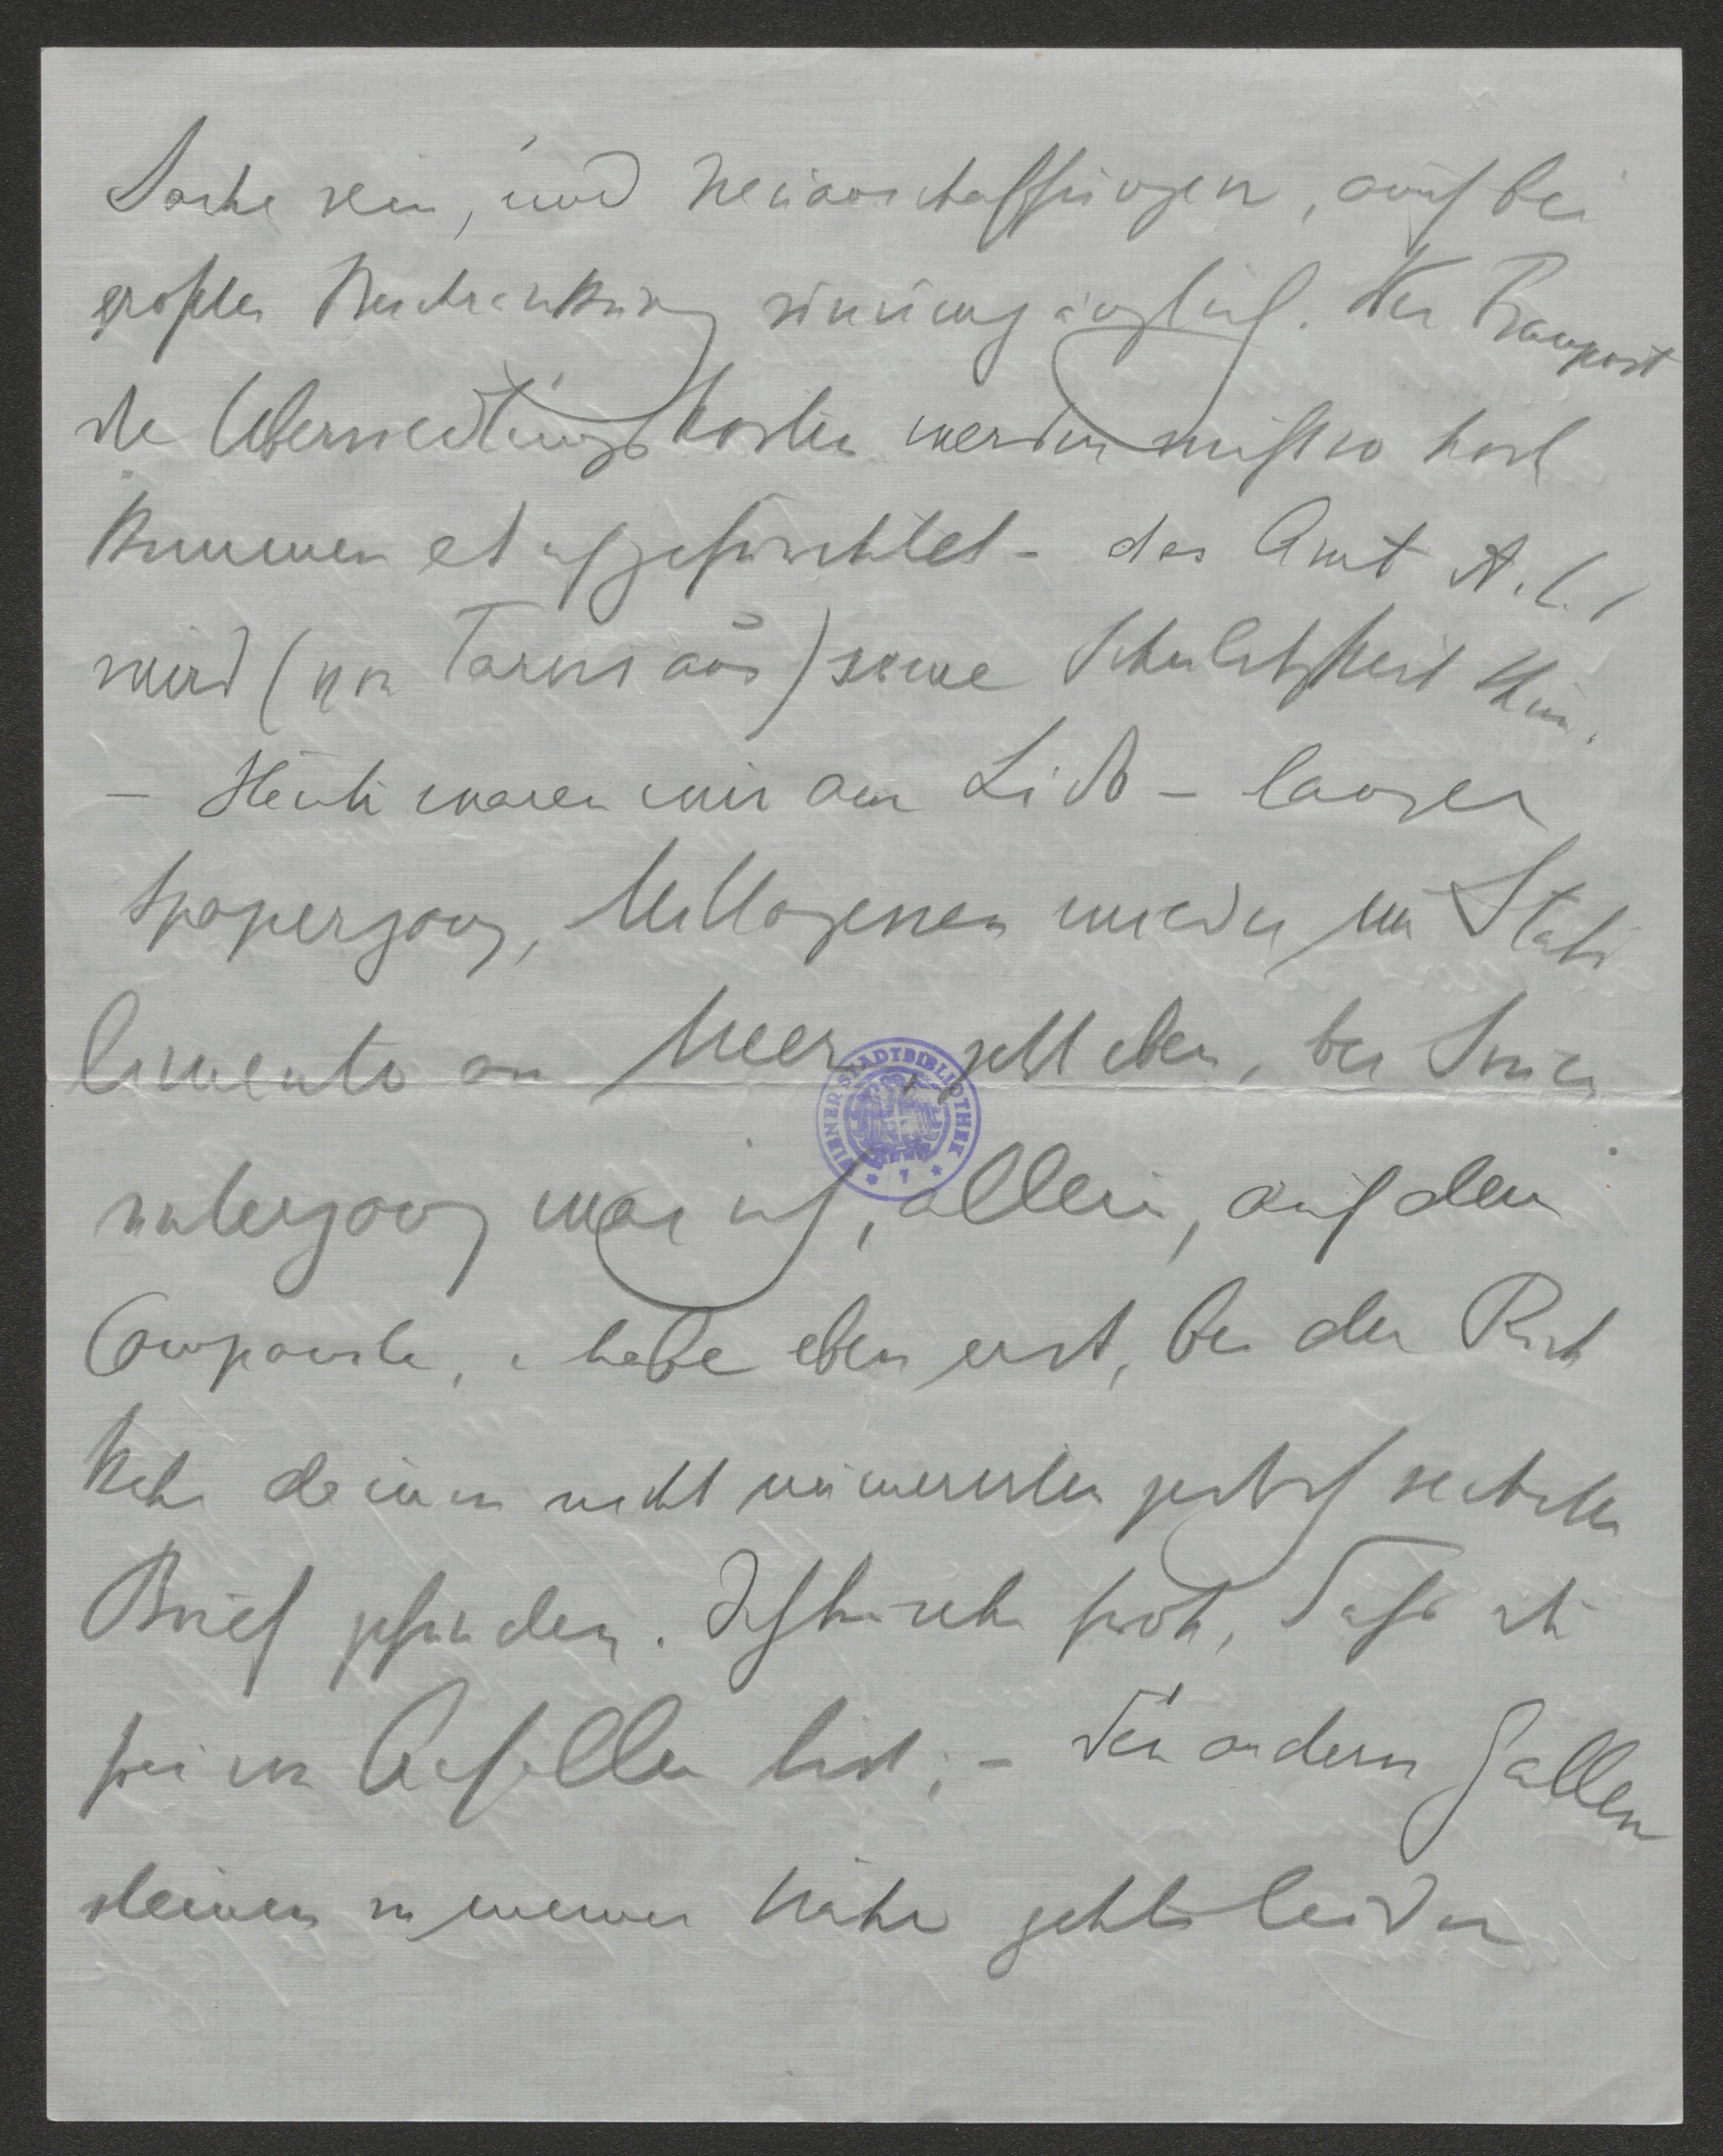 Sache sein, und Neuanschaffungen, auch bei
größter Beschränkung unumgänglich. Der Transport
die Übersiedlungskosten werden nicht so hoch
kommen als ich gefürchtet – das Amt A.
wird (von Tarvis aus) seine Schuldigkeit thun.
– Heute waren wir am Lido – langer
Spaziergang, Mittagessen wieder im Stabi
limento am Meer, jetzt eben, bei Sonnen
untergang war ich, allein, auf dem
Campanile, habe eben erst, bei der Rück
kehr deinen nicht
Brief gefunden. Ich bin sehr froh, dass du
frei von Anfällen bist; – den andern Gallen
steinen in meiner Nähe geht's leider
WIENER STADTBIBLIOTHEK